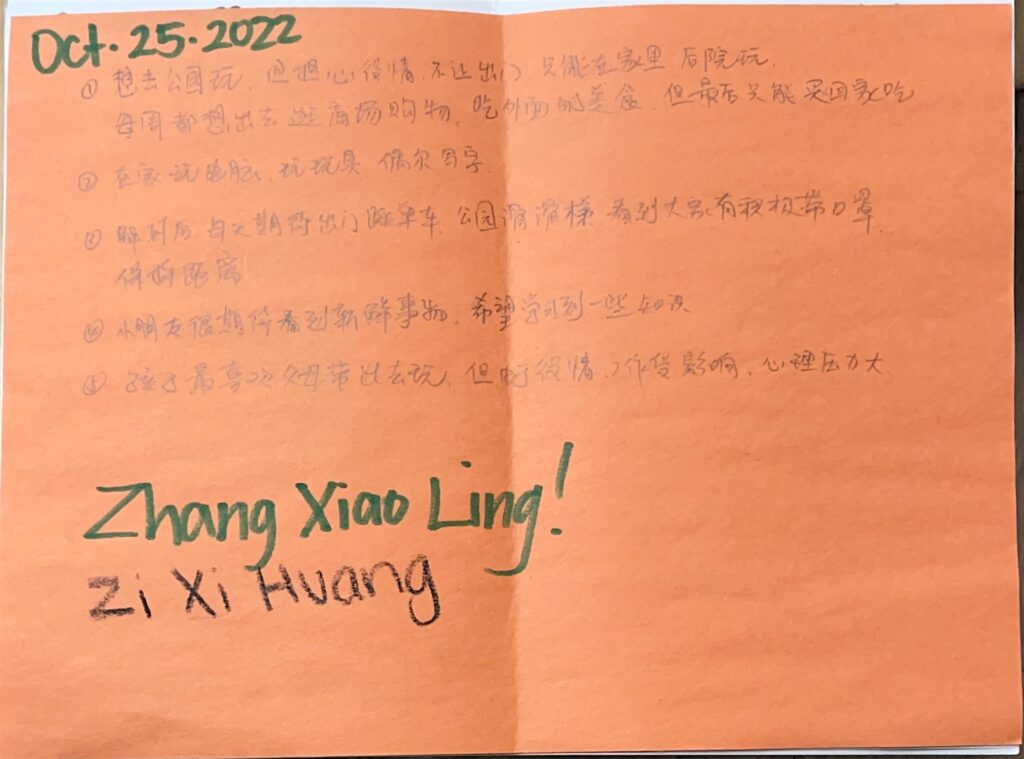 Oct. 25. 2022
① 想去公园玩, 但担心役情, 不让出门 只能在家里 后院玩.
每周都想出去逛商场购物, 吃外面的美食, 但最后只能买回家吃
② 在家玩电脑, 玩玩具 偶尔写字
后每天期待出门踩单车, 公园滑滑梯 看到大家有积极带口罩,
保持距离
小朋友假期待看到新鲜事物, 希望学习到一些知识
孩子最喜欢父母带出去玩, 但 役情, 工作受影响, 心理压力大
Zhang Xiao Ling!
Zi Xi Huang